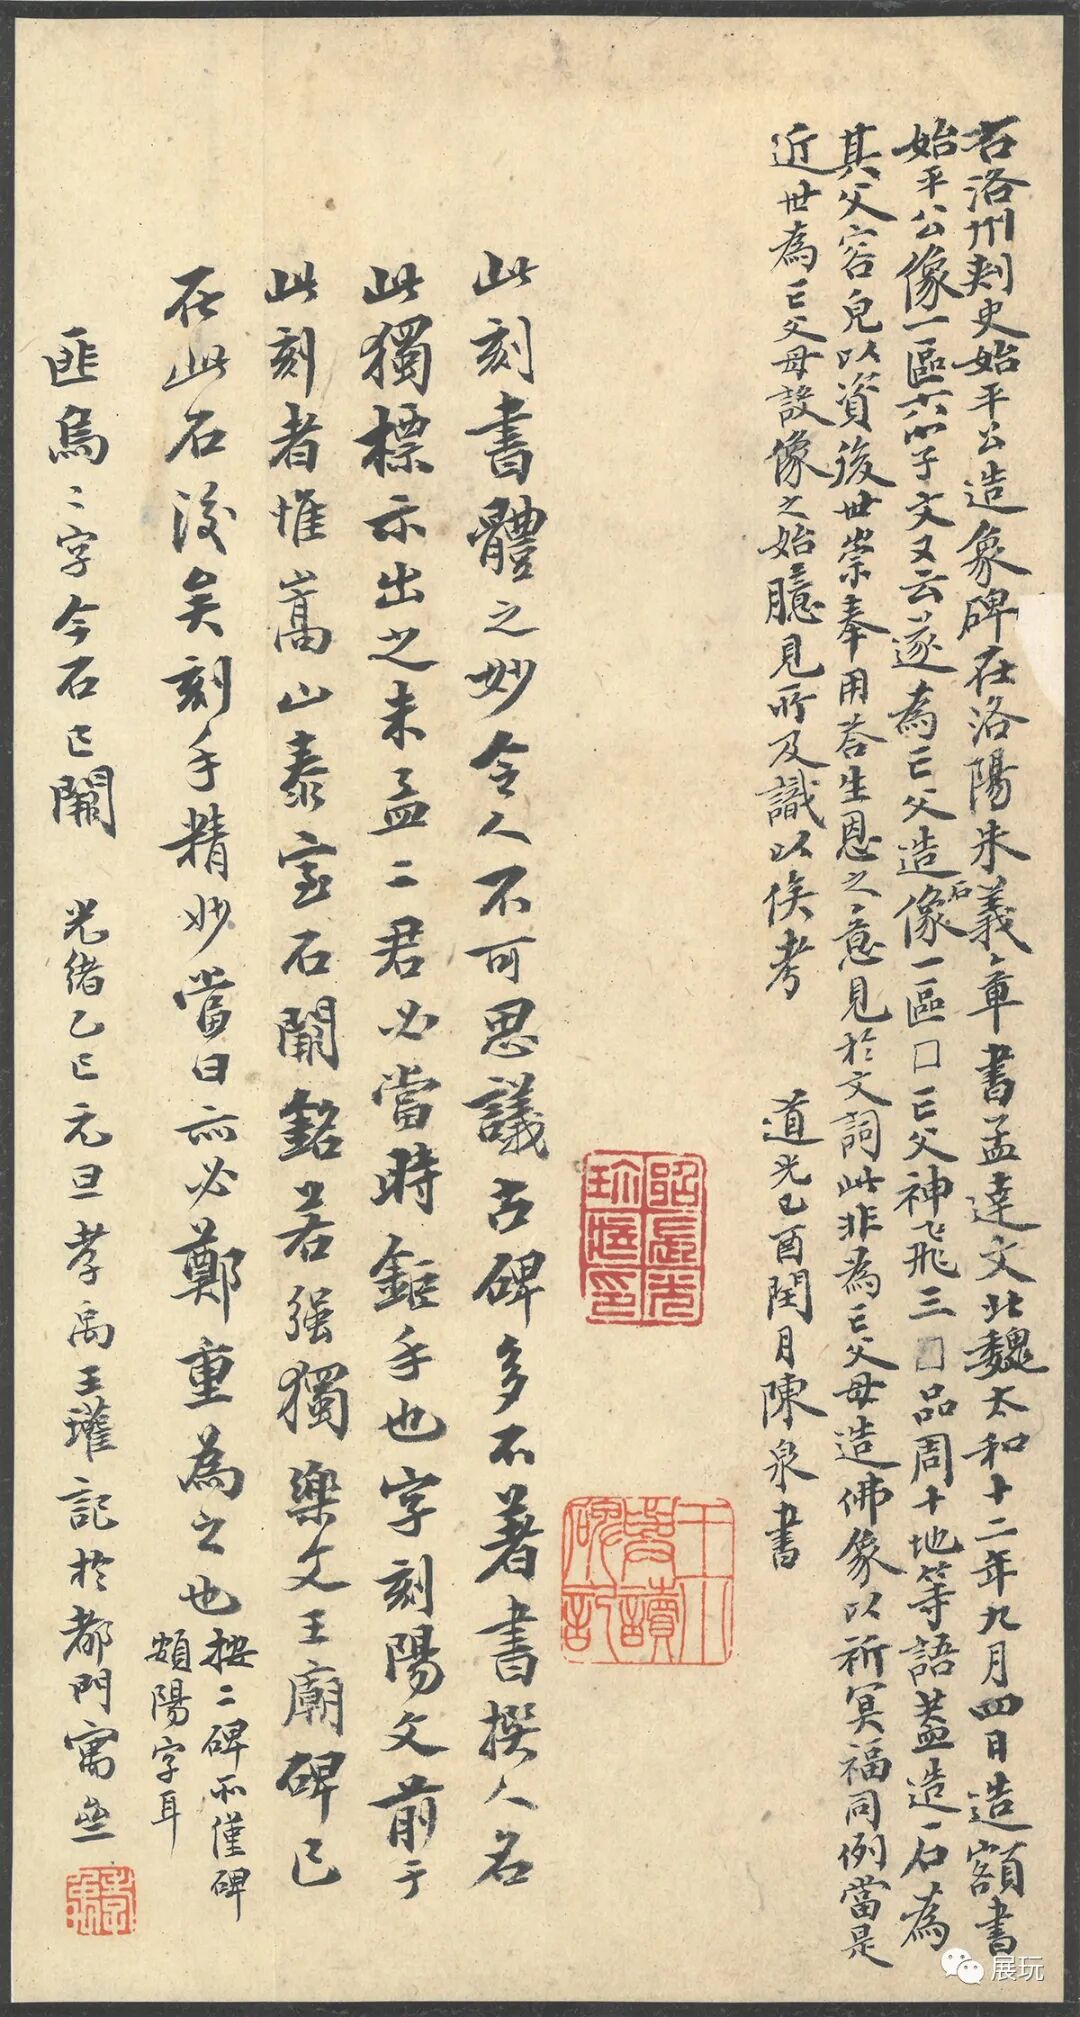 右洛州刾史始平公造象碑在洛陽朱義章書孟達文北魏太和十二年九月四日造額書
始平公像一區六小字文又云遂為亡父造石像一區□亡父神飛三□品周十地等語蓋造一石為
其父容皃以資後世崇奉用荅生恩之意見於文詞此非為亡父母造佛象以祈冥福同例當是
近世為亡父母設像之始臆見所及識以俟考　道光己酉閏月陳泉書
此刻書體之妙令人不可思議古碑多不著書撰人名
此獨標示出之朱孟二君必當時鉅手也字刻陽文前于
此刻者惟嵩山泰室石闕銘若强獨樂文王廟碑已
在此石後矣刻手精妙當日亦必鄭重為之也按二碑亦僅碑
額陽字耳
匪烏二字今石已闕　光緒乙巳元旦孝禹王瓘記於都門寓齋
孝禹
展玩